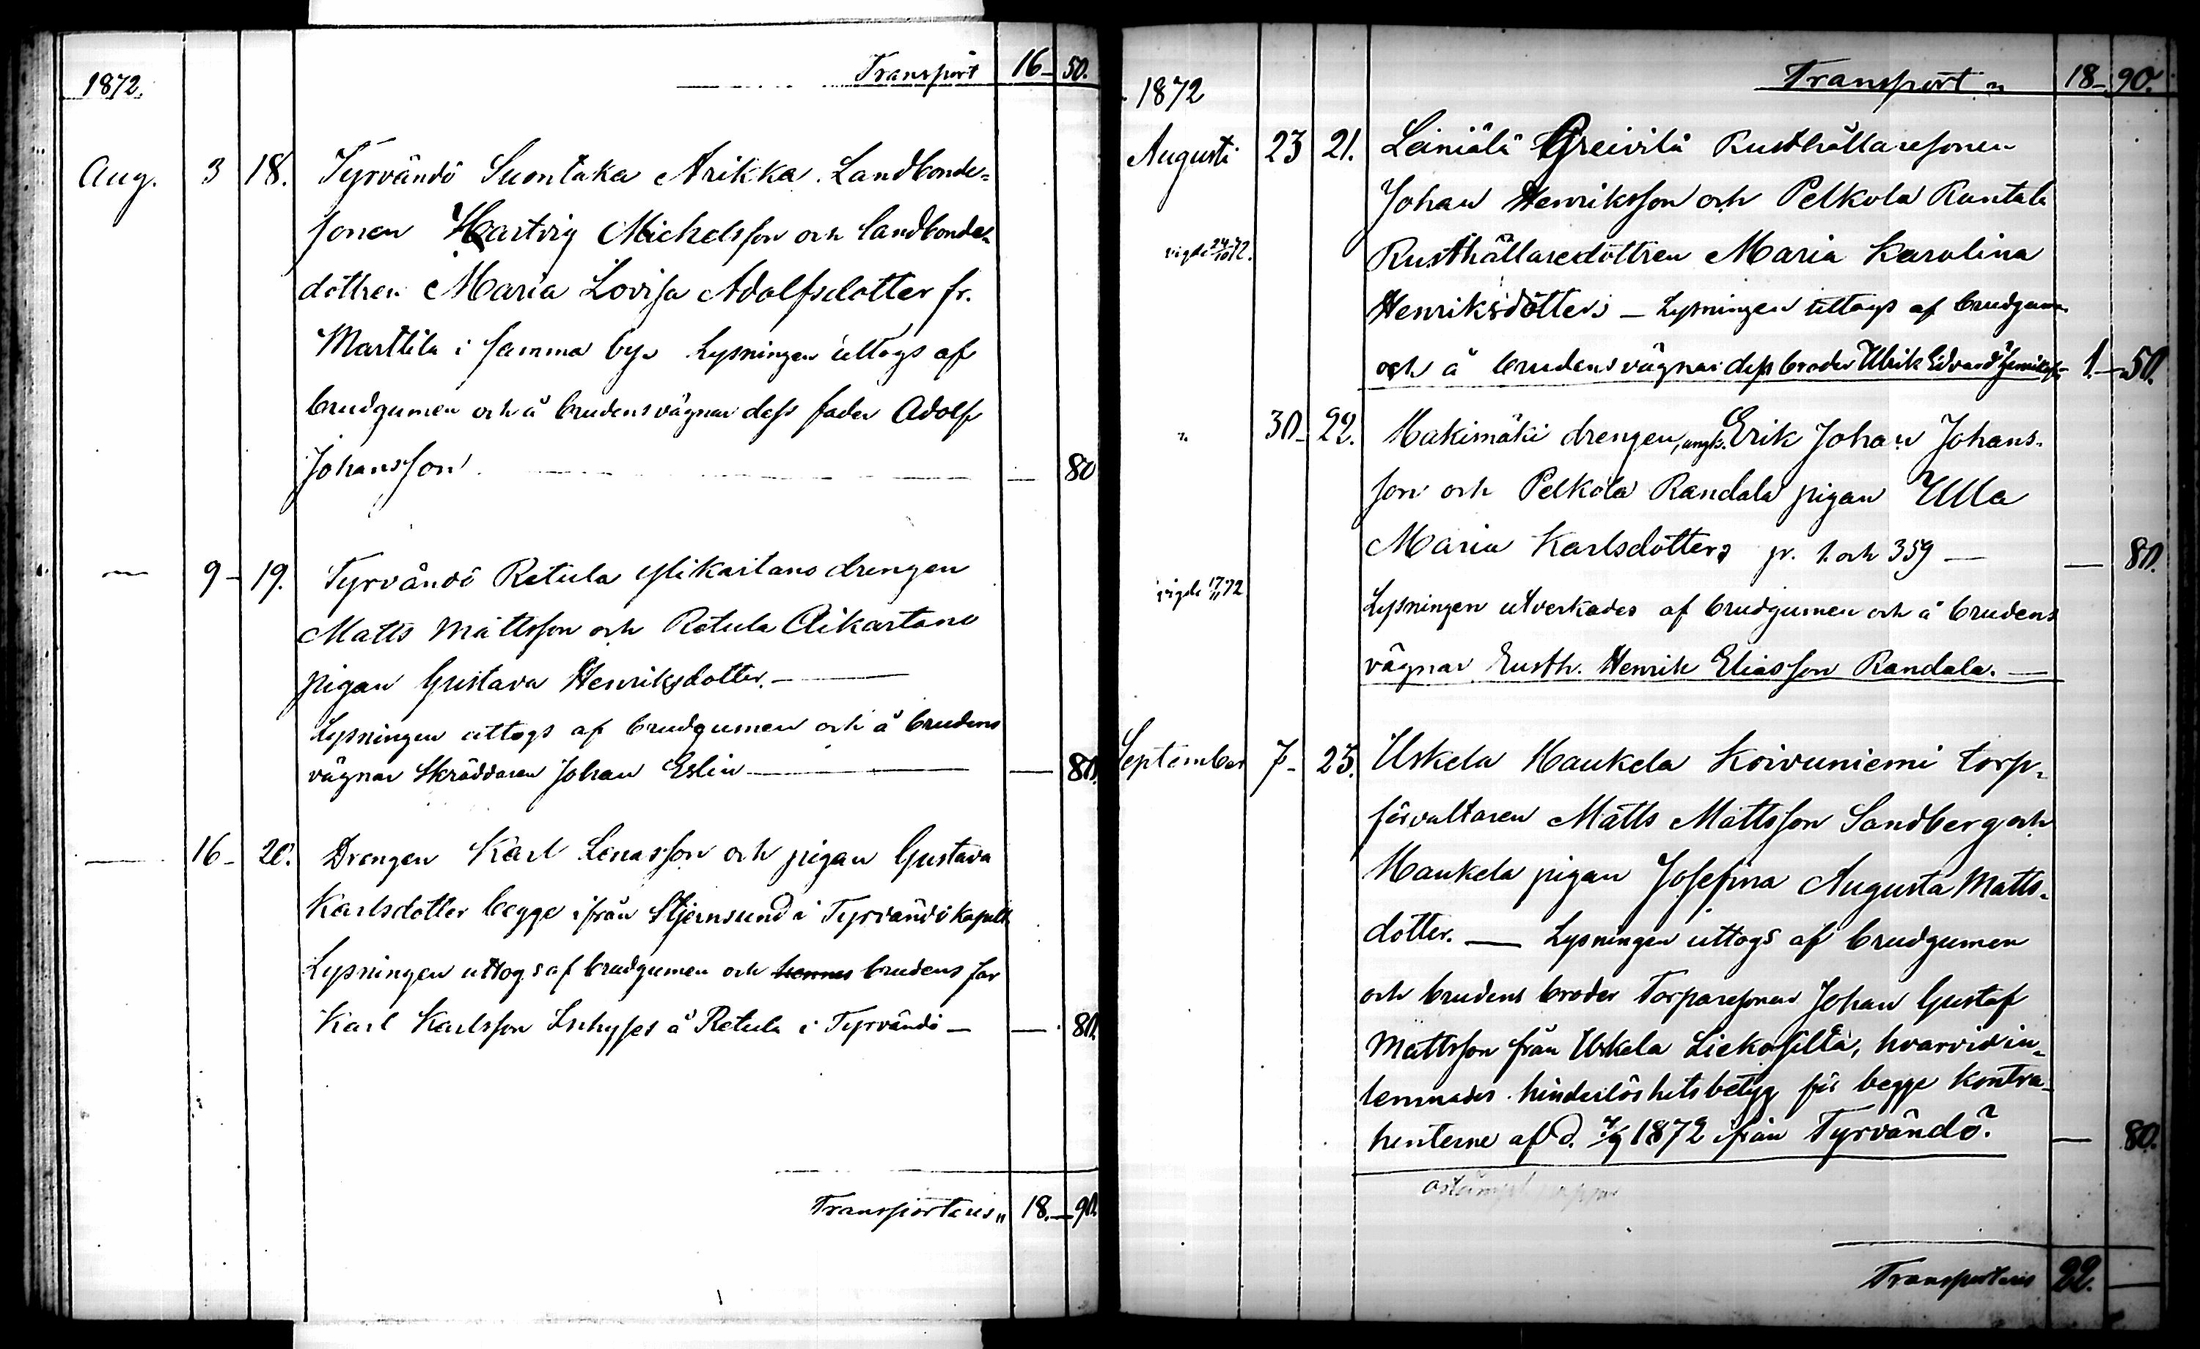 1872. Transport 16-50.
Aug. 3 18. Tyrvändö Suontaka Arikka Landbonde-
sonen Hartvig Michelsson och landbonde-
dottren Maria Lovisa Adolfsdotter fr.
Marttila i samma by. Lysningen uttogs af
brudgumen och å brudens vägnar dess fader Adolf
Johansson. — 80
— 9- 19. Tyrvändö Retula Ylikartano drengen
Matts Mattsson och Retula Alikartano
pigan Gustava Henriksdotter. —
Lysningen uttogs af brudgumen och å brudens
vägnar Skräddaren Johan Eslin — — 80.
— 16- 20. Drengen Karl Lenasson och pigan Gustava
Karlsdotter begge ifrån Stjernsund i Tyrvändö kapell.
Lysningen uttogs af brudgumen och hennes brudens far
Karl Karlsson å Retula i Tyrvändö — — 80.
Transporteras 18.-90.
1872 Transport 18-90.
Augusti 23 21. Leiniälä Greivilä Rusthållaresonen
Johan Henriksson och Pelkola Rantala
vigde 24/10 72. Rusthållaredottren Maria Karolina
Henriksdotter; — Lysningen uttogs af brudgumen
och å brudens vägnar dess broder Ulrik Edvard Henriksson 1.-50.
" 30- 22. Hakimäki drengen, ungk. Erik Johan Johans-
son och Pelkola Randala pigan Ulla
Maria Karlsdotter; pr. 1. och 359 — — 80.
vigde 17/11 72 Lysningen utverkades af brudgumen och å brudens
vägnar Rusth. Henrik Eliasson Randala. —
September 7- 23. Uskela Haukela Koivuniemi torp-
förvaltaren Matts Mattsson Sandberg och
Haukela pigan Josefina Augusta Matts-
dotter. — Lysningen uttogs af brudgumen
och brudens broder Torparesonen Johan Gustaf
Mattsson från Uskela Liekosilta, hvarvid in-
lemnades hinderlöshetsbetyg för begge kontra-
henterne af d. 7/9 1872 ifrån Tyrvändö. — 80.
Transporteras 22. —